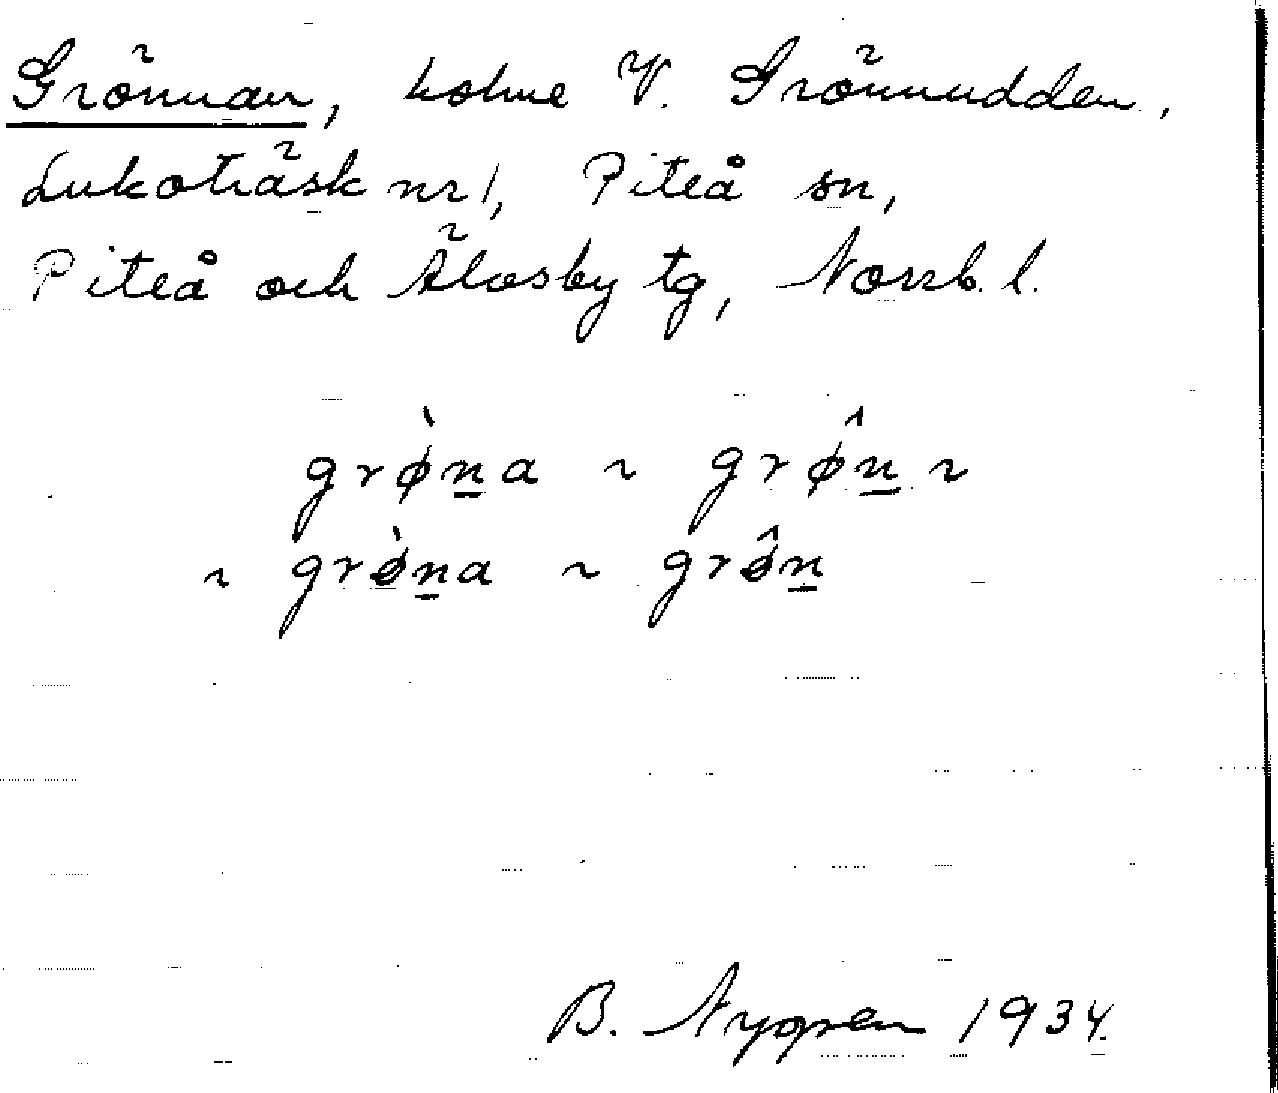 Grönnan, holme V. Grönnudden,
Lukoträsk nr 1, Piteå sn,
Piteå och Älvsby tg, Norrb. l.
grø̀n̲a ~ grø̂n̲ ~
~ grø̀n̲a ~ grø̂n̲
B. Nygren 1934.